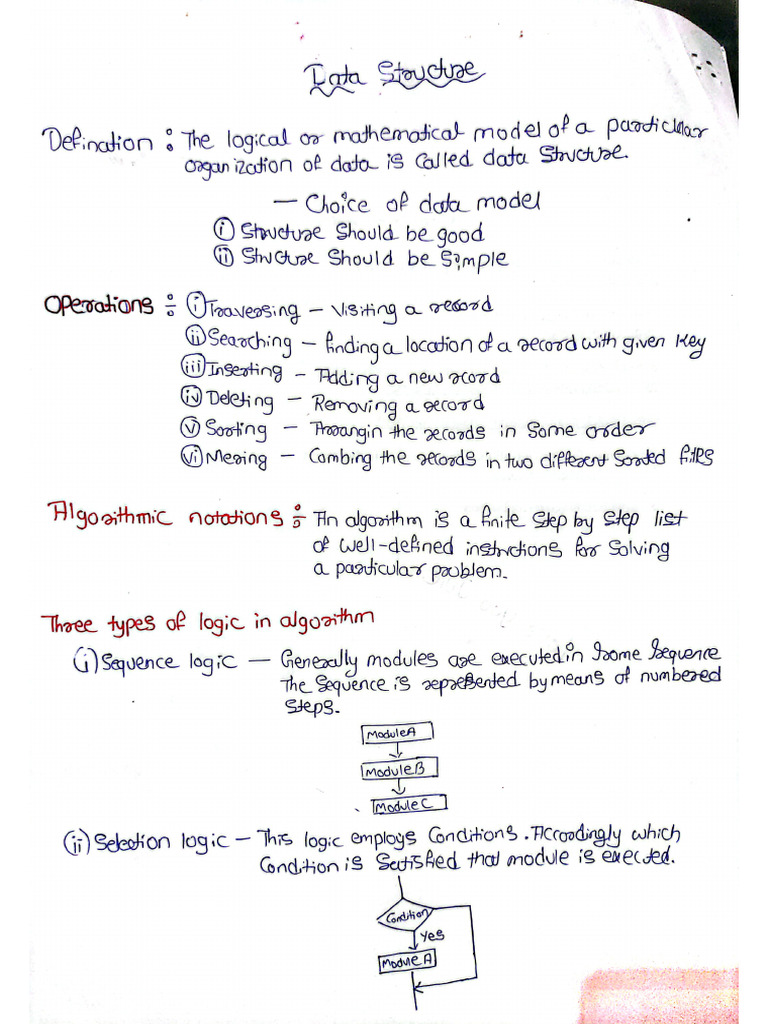 Data Structure
Defination : The logical or mathematical model of a particular
organization of data is called data structure.
— Choice of data model
(i) Structure should be good
(ii) Structure should be simple
Operations : (i) Traversing — Visiting a record
(ii) Searching — finding a location of a record with given key
(iii) Inserting — Adding a new record
(iv) Deleting — Removing a record
(v) Sorting — Arrangin the records in some order
(vi) Mering — Combing the records in two different sorted files
Algorithmic notations : An algorithm is a finite step by step list
of well-defined instructions for solving
a particular problem.
Three types of logic in algorithm
(i) Sequence logic — Generally modules are executed in some sequence
The sequence is represented by means of numbered
steps.
Module A
Module B
Module C
(ii) Selection logic — This logic employs conditions. Accordingly which
condition is satisfied that module is executed.
Condition
Yes
Module A